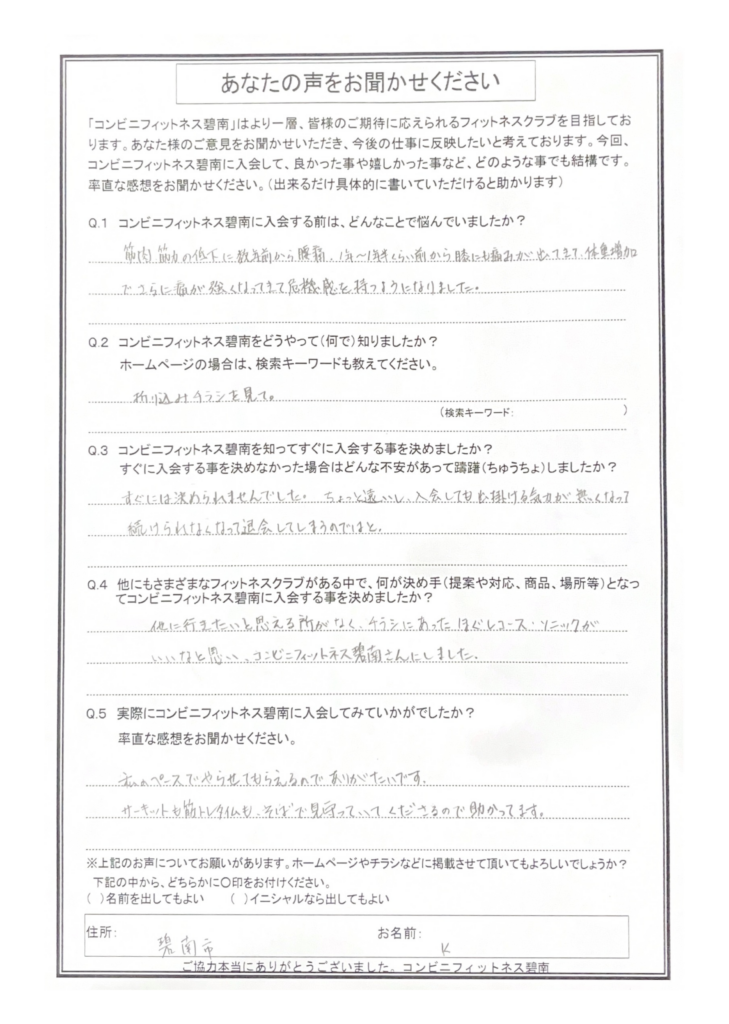 あなたの声をお聞かせください
「コンビニフィットネス碧南」はより一層、皆様のご期待に応えられるフィットネスクラブを目指してお
ります。あなた様のご意見をお聞かせいただき、今後の仕事に反映したいと考えております。今回、
コンビニフィットネス碧南に入会して、良かった事や嬉しかった事など、どのような事でも結構です。
率直な感想をお聞かせください。（出来るだけ具体的に書いていただけると助かります）
Q.1 コンビニフィットネス碧南に入会する前は、どんなことで悩んでいましたか？
筋肉筋力の低下に数年前から腰痛、1年～1年半くらい前から膝にも痛みが出てきて、体重増加
でさらに痛が強くなってきて危機感を持つようになりました。
Q.2 コンビニフィットネス碧南をどうやって（何で）知りましたか？
ホームページの場合は、検索キーワードも教えてください。
折り込みチラシを見て。
（検索キーワード： ）
Q.3 コンビニフィットネス碧南を知ってすぐに入会する事を決めましたか？
すぐに入会する事を決めなかった場合はどんな不安があって躊躇（ちゅうちょ）しましたか？
すぐには決められませんでした。ちょっと遠いし、入会しても出掛ける気力が無くなって
続けられなくなって退会してしまうのではと。
Q.4 他にもさまざまなフィットネスクラブがある中で、何が決め手（提案や対応、商品、場所等）となっ
てコンビニフィットネス碧南に入会する事を決めましたか？
他に行きたいと思える所がなく、チラシにあったほぐしコース・ソニックが
いいなと思い、コンビニフィットネス碧南さんにしました。
Q.5 実際にコンビニフィットネス碧南に入会してみていかがでしたか？
率直な感想をお聞かせください。
私のペースでやらせてもらえるのでありがたいです。
サーキットも筋トレタイムも、そばで見守っていてくださるので助かってます。
※上記のお声についてお願いがあります。ホームページやチラシなどに掲載させて頂いてもよろしいでしょうか？
下記の中から、どちらかに〇印をお付けください。
（ ）名前を出してもよい （ ）イニシャルなら出してもよい
住所： 碧南市 お名前： K
ご協力本当にありがとうございました。コンビニフィットネス碧南